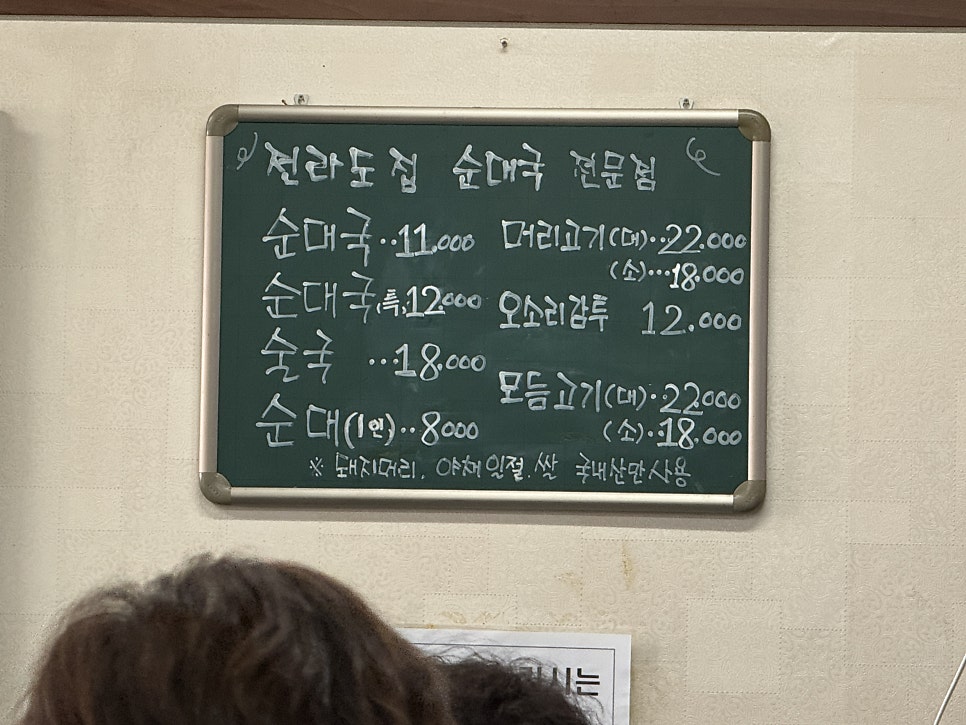 전라도집 순대국 전문점
순대국··11.000
순대국(특)12.000
술국 ···18.000
순대(1인)··8000
머리고기(대)··22.000
(소)···18.000
오소리감투 12.000
모듬고기(대)··22.000
(소)··18.000
※ 돼지머리. 야채일절. 쌀 국내산만사용
시는